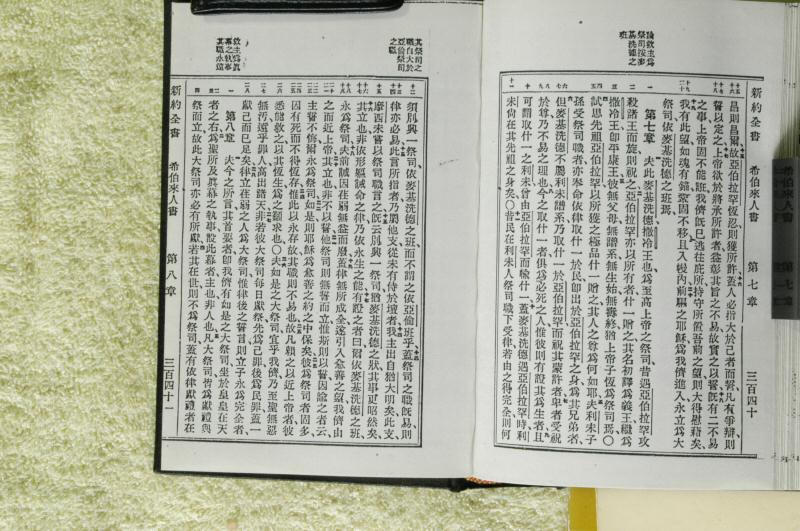 論救主爲
祭司按麥
基洗德之
班
新約全書
希伯來人書
第七章
三百四十
昌則昌爾故亞伯拉罕恆忍則獲所許蓋人必指大於己者而誓凡有爭辯則
誓以定之上帝欲於將承所許者益彰其旨之不易故實之以誓旣有二不易
之事上帝固不能誑我儕旣已逃往庇所持守所置吾前之望則大得慰藉矣
我有此望如魂有錨鞏固不移且入幔內前驅之耶穌爲我儕進入永立爲大
祭司依麥基洗德之班焉
第七章
夫此麥基洗德撒冷王也爲至高上帝之祭司昔遇亞伯拉罕攻
殺諸王而旋則祝之亞伯拉罕亦以所有者什一贈之其名初釋爲義王繼爲
撒冷王卽平康王彼無父無母無譜系無生始無壽終猶上帝子恆爲祭司焉〇
試思先祖亞伯拉罕以所獲之極品什一贈之其人之尊爲何如耶夫利未子
孫受祭司職者亦奉命依律取什一於民卽出於亞伯拉罕之身爲其兄弟者
但麥基洗德不屬利未譜系乃取什一於亞伯拉罕而祝其蒙許者卑者受祝
於尊乃不易之理也今之取什一者俱爲必死之人惟彼則有證其爲生者且
可謂取什一之利未曾由亞伯拉罕而輸什一蓋麥基洗德遇亞伯拉罕時利
未尙在其先祖之身矣〇昔民在利未人祭司職下受律若由之得完全則何
其祭司之
職自大於
亞倫祭司
之職
救主爲眞
幕之執事
其職永遠
須別興一祭司依麥基洗德之班而不謂之依亞倫班乎蓋祭司之職旣易則
律亦必易此言所指者乃屬他支從未有侍於壇者我主出自猶大明矣此支
摩西未嘗以祭司職言之旣云別興一祭司猶麥基洗德之狀其事更昭然矣
其立也非依形軀誡命之律乃依永生之能有證之者曰爾依麥基洗德之班
永爲祭司夫前誡因在弱無益而廢蓋律無所成全遂引入愈善之望我儕由
之而近上帝其立也非不以誓他祭司則無誓而立惟斯則以誓因諭之者云
主誓不悔爾永爲祭司如是則耶穌爲愈善之約之中保矣彼爲祭司者固多
因有死而不得恆存惟此以永存故其職則不易也故凡賴之以近上帝者彼
悉能救之以其恆生爲之籲求也〇夫如是之大祭司宜乎我儕乃至聖無惡
無汚遠乎罪人高出諸天非若彼大祭司每日獻祭先爲己罪後爲民罪蓋一
獻己而已足矣律立在弱之人爲大祭司惟律後之誓言則立子永爲完全者
第八章
夫今之所言其首要者卽我儕有如是之大祭司坐於皇皇在天
者之右爲聖所及眞幕之執事設此幕者主也非人也凡大祭司皆爲獻禮與
祭而立故此大祭司亦必有所獻若其在世則不爲祭司蓋有依律獻禮者在
新約全書
希伯來人書
第八章
三百四十一